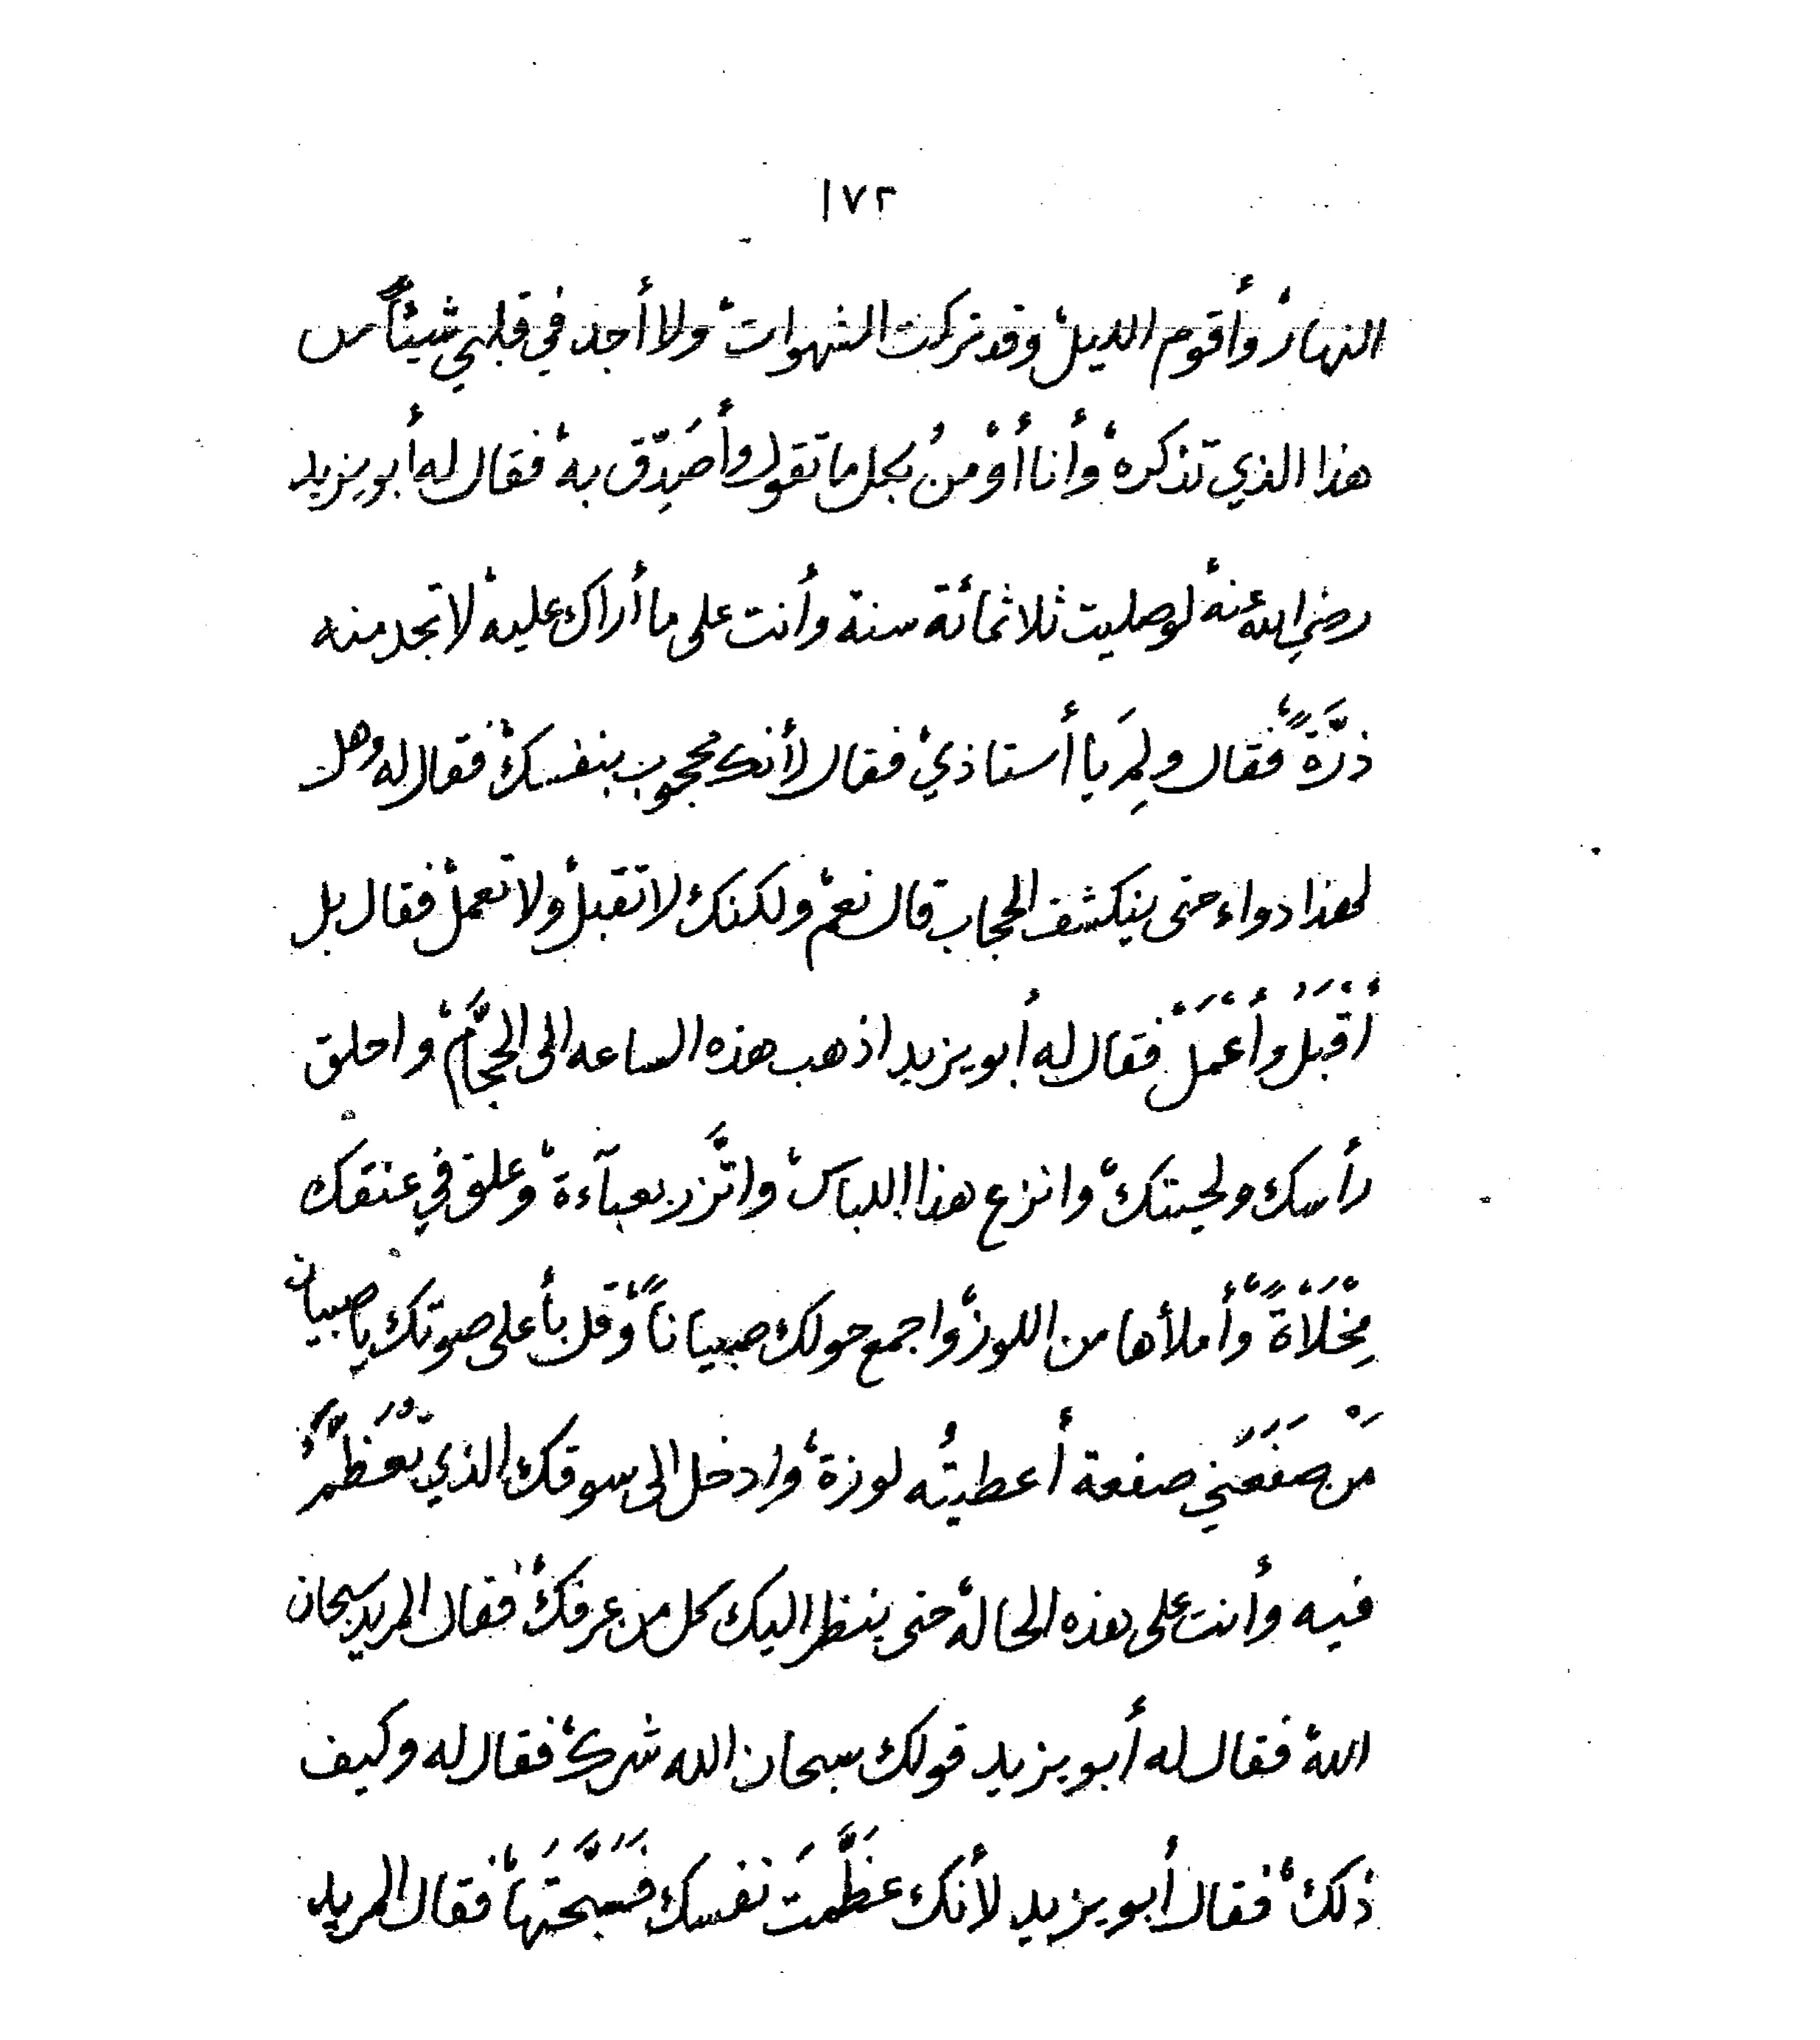 ١٧٢
النهار، وأقوم الليل، وقد تركت الشهوات، ولا أجد في قلبي شيئاً من
هذا الذي تذكره، وأنا أؤمنُ بكل ما تقول وأصَدِّق به، فقال له أبو يزيد
رضي الله عنه، لو صليت ثلاثمائة سنة وأنت على ما أراك عليه، لا تجد منه
ذرَّةً، فقال ولِمَ يا أستاذي، فقال لأنك محجوب بنفسك، فقال له وهل
لهذا دواء حتى ينكشف الحجاب قال نعم، ولكنك لا تقبل، ولا تعمل، فقال بل
أَقْبَلُ وأَعْمَلُ، فقال له أبو يزيد اذهب هذه الساعه الى الحجَّام، واحلق
رأسك ولحيتك، وانزع هذا اللباس، واتَّزر بعبآءة، وعلق في عنقك
مِخْلَاةً، وأملأها من اللوز، واجمع حولك صبياناً، وقل بأعلى صوتك يا صبيان
مَنْ صَفَعَني صفعة أعطيتُه لوزة، وادخل الى سوقك الذي تُعَظَّمُ
فيه وأنت على هذه الحالة، حتى ينظر اليك كل من عرفك، فقال المريد سبحان
الله، فقال له أبو يزيد قولك سبحان الله شرك، فقال له وكيف
ذلك، فقال أبو يزيد لأنك عَظَّمتَ نفسك فَسَبَّحتَها، فقال المريد